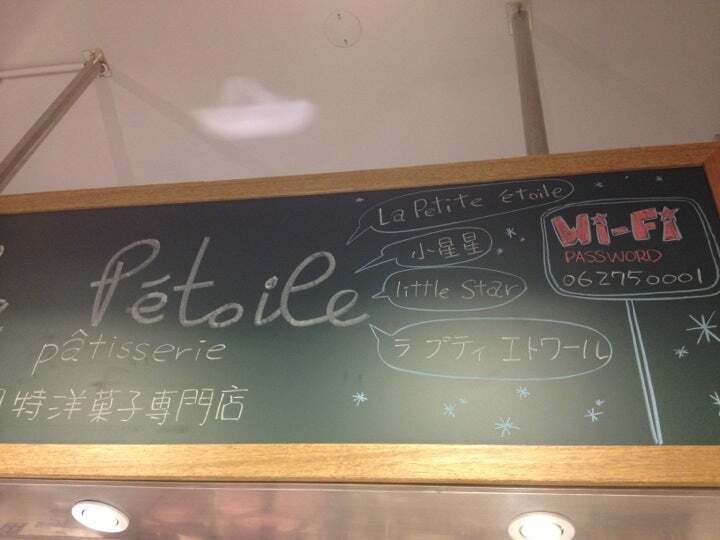 Pétoile
pâtisserie
特洋菓子専門店
La Petite étoile
小星星
little star
ラ プティ エトワール
Wi-Fi
PASSWORD
062750001